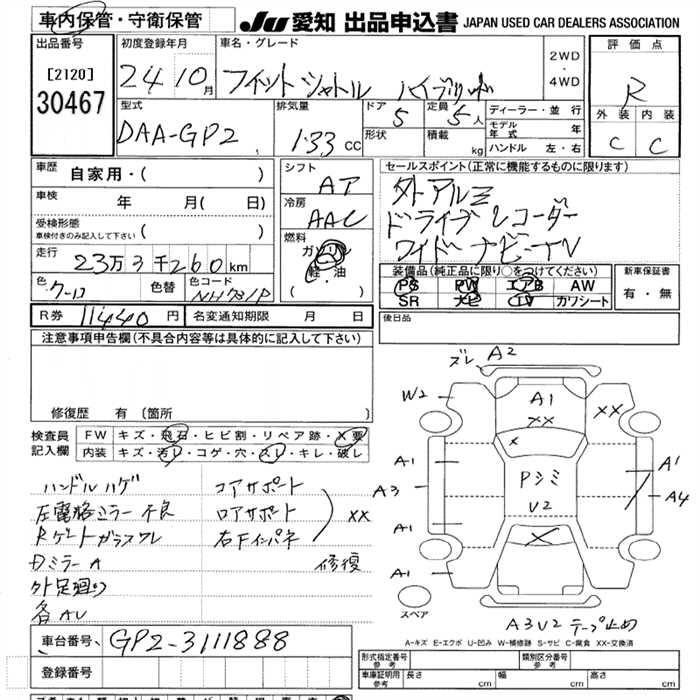 車内保管・守衛保管
JU 愛知 出品申込書 JAPAN USED CAR DEALERS ASSOCIATION
出品番号
[2120]
30467
初度登録年月
24 10月
車名・グレード
フィットシャトル ハイブリッド
2WD
・
4WD
評価点
R
外装 内装
C C
型式
DAA-GP2
排気量
1.33 CC
ドア
5
定員
5人
形状
積載
kg
ディーラー・並行
モデル年式 年
ハンドル 左・右
車歴
自家用・( )
車検
年 月( 日)
受検形態
車検付きのみ記入して下さい ( )
走行
23万3千260km
色
クーロ
色替
色コード
NH731P
シフト
AT
冷房
AAC
燃料
ガソリン
軽・油
( )
セールスポイント(正常に機能するものに限ります)
外アルミ
ドライブレコーダー
ワイドナビ-TV
装備品(純正品に限り○をつけてください)
PS PW エアB AW
SR ナビ TV カワシート
新車保証書
有・無
R券 11440円
名変通知期限 月 日
後日品
注意事項申告欄(不具合内容等は具体的に記入して下さい)
修復歴 有 〔箇所 〕
検査員記入欄
FW キズ・飛石・ヒビ割・リペア跡・X要
内装 キズ・汚レ・コゲ・穴・スレ・キレ・破レ
ハンドルハゲ
左電格ミラー不良
Rゲートガラスワレ
Dミラー A
外足廻り
各AU
コアサポート
ロアサポート
右Fインパネ
XX
修復
ズレ A2
W2
A1
XX
XX
X
A1
A3
A1
A1
Pシミ
V2
A1
A4
スペア
A3V2 テープ止め
A-キズ E-エクボ U-凹み W-補修跡 S-サビ C-腐食 XX-交換済
車台番号
GP2-3111888
登録番号
形式指定番号
参考
類別区分番号
参考
車庫証明用
参考
長さ cm
幅 cm
高さ cm